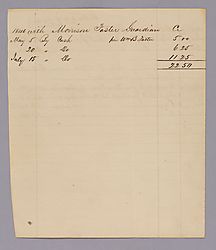 with Morrison Foster Guardian Cr
May 5 By Cash per Wm B Foster 5.00
20 " Do 6.25
July 18 " Do 11.25
22.50